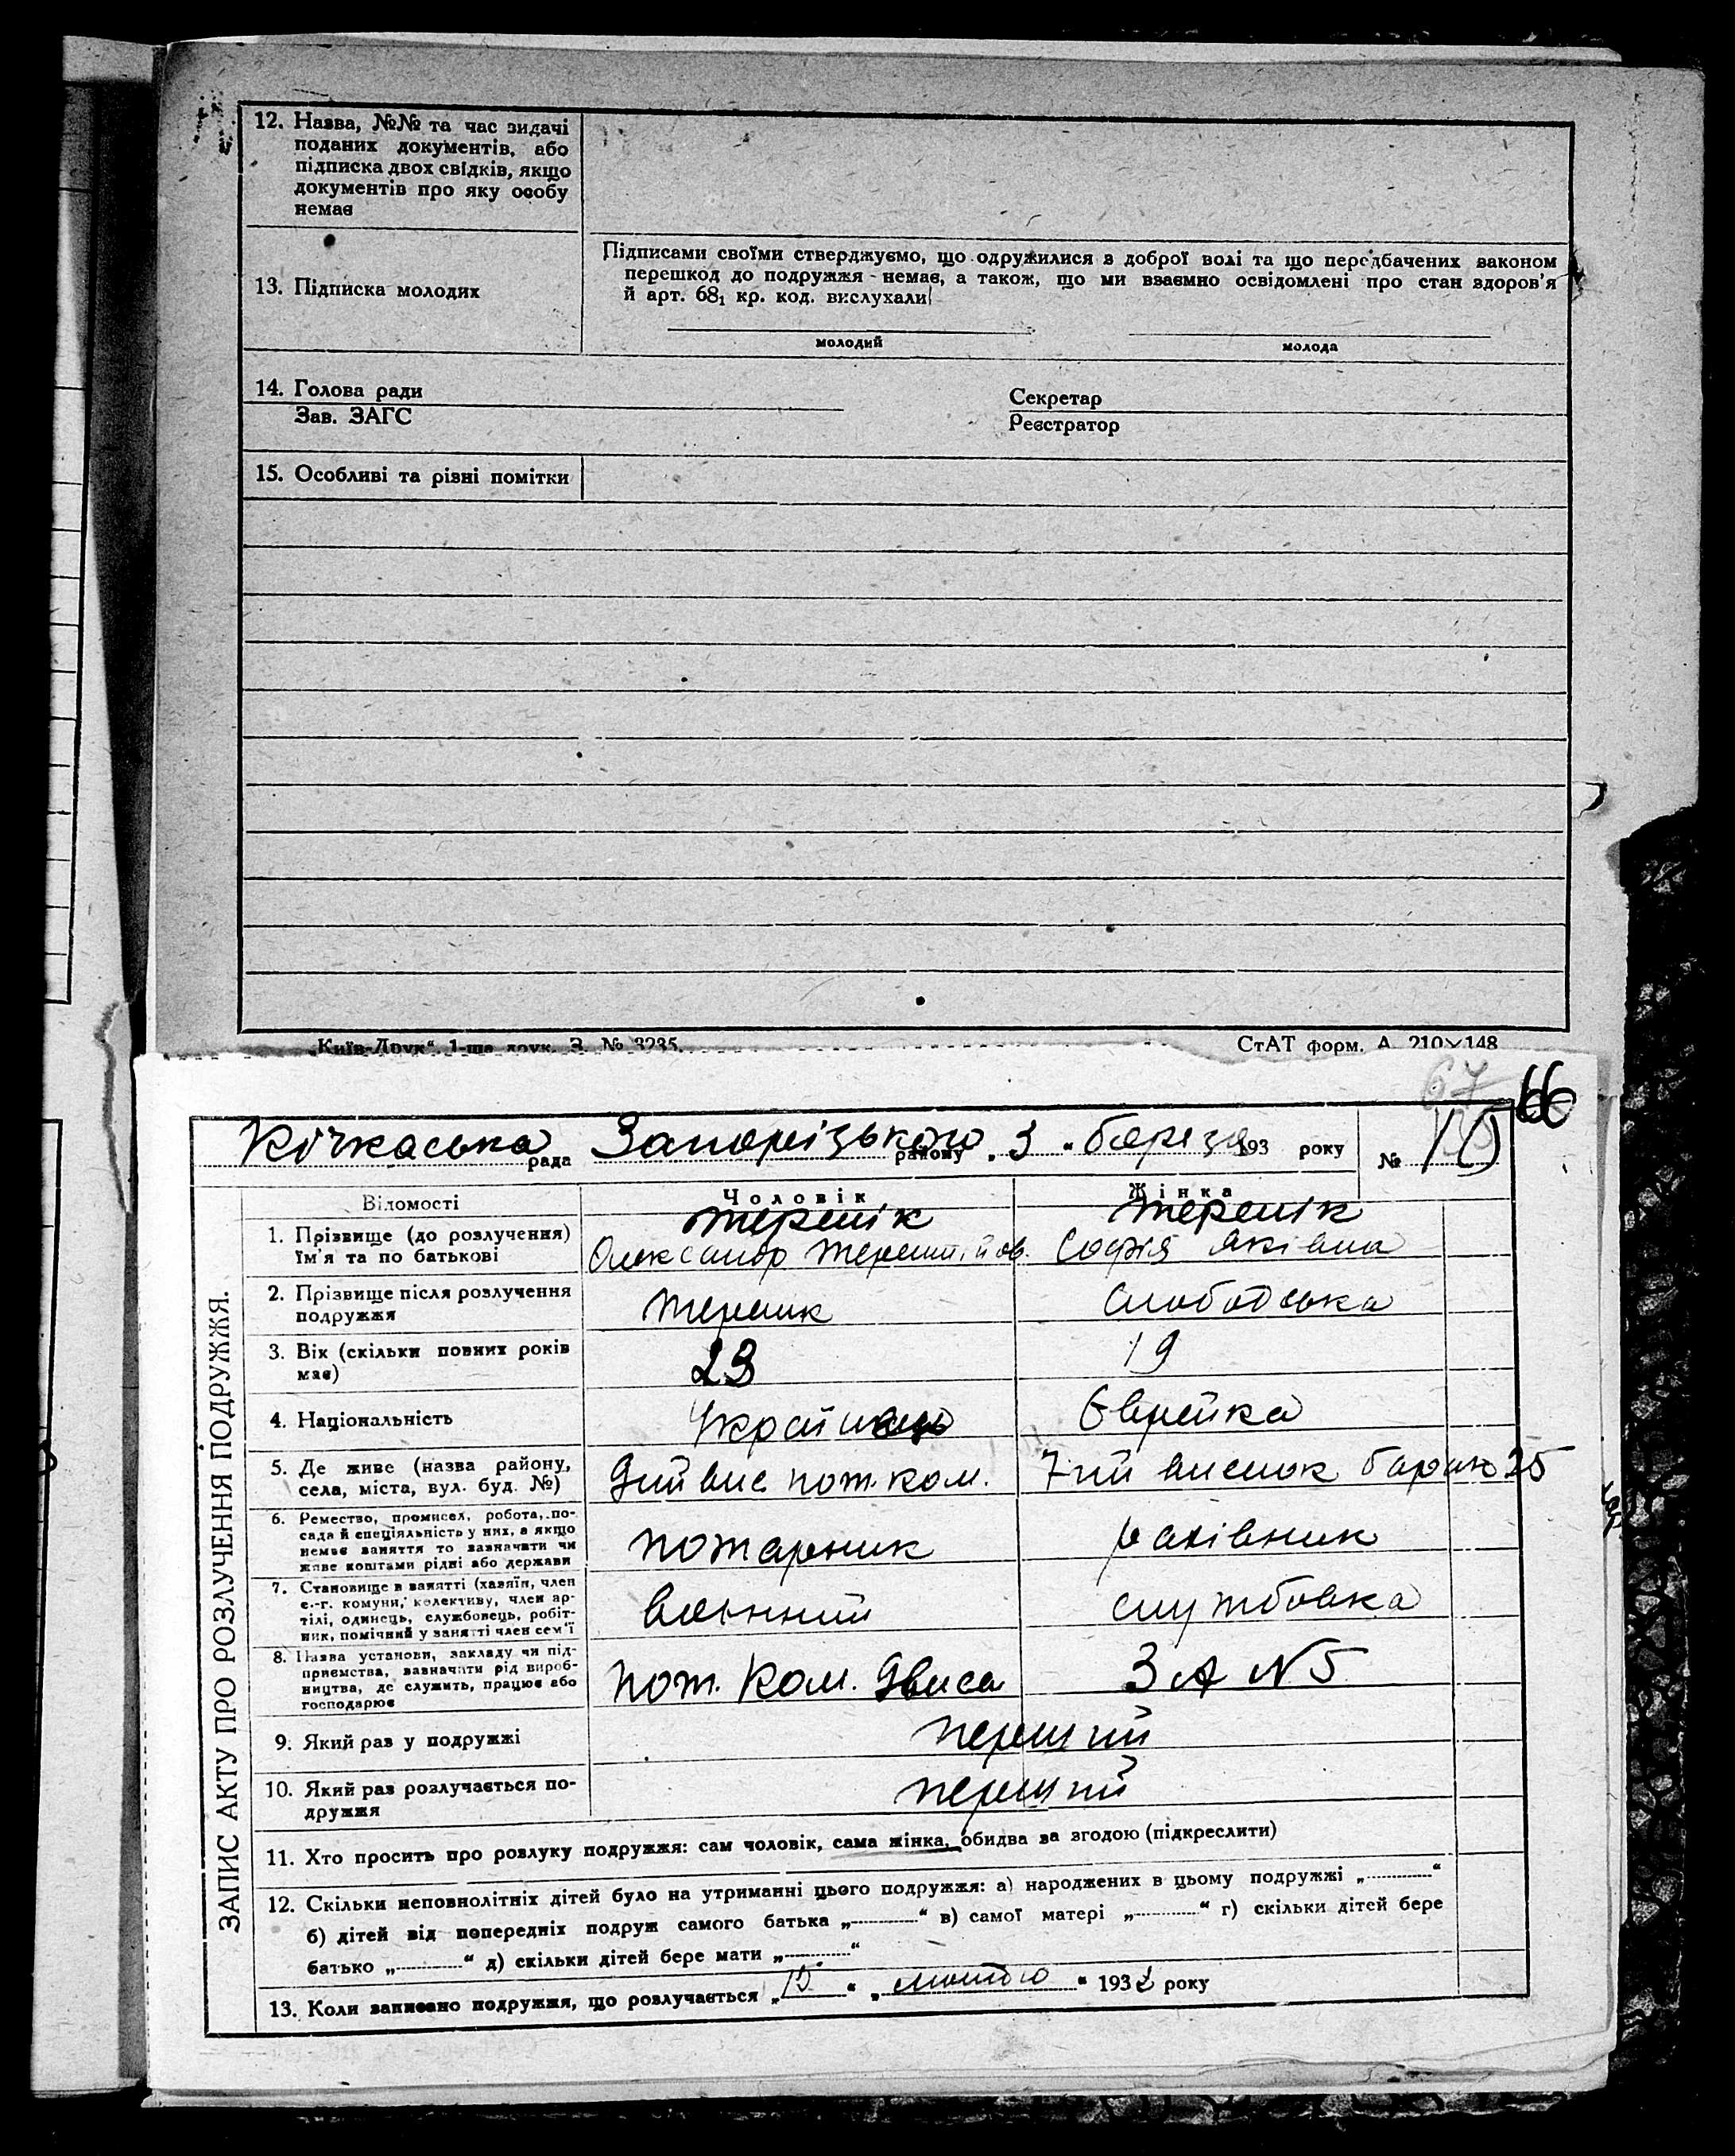 12. Назва, №№ та час видачі
поданих документів, або
підписка двох свідків, якщо
документів про яку особу
немає
13. Підписка молодих
Підписами своїми стверджуємо, що одружилися з доброї волі та що передбачених законом
перешкод до подружжя немає, а також, що ми взаємно освідомлені про стан здоров'я
й арт. 68₁ кр. код. вислухали
молодий
молода
14. Голова ради
Зав. ЗАГС
Секретар
Реєстратор
15. Особливі та різні помітки
„Київ-Друк“, 1-ша друк. З. № 3235.
СтАТ форм. А 210×148
67
66
Кічкаська рада Запорізького району „3“ березня 193 року № 10
ЗАПИС АКТУ ПРО РОЗЛУЧЕННЯ ПОДРУЖЖЯ.
Відомості
Чоловік
Жінка
1. Прізвище (до розлучення)
ім'я та по батькові
Терешік
Олександр Терентійов.
Терешік
Софія Яківна
2. Прізвище після розлучення
подружжя
Слободська
3. Вік (скільки повних років
має)
23
19
4. Національність
Українець
Єврейка
5. Де живе (назва району,
села, міста, вул. буд. №)
9ий вис пож. ком.
7-ий висилок барак 25
6. Ремество, промисел, робота, по-
сада й спеціяльність у них, а якщо
немає заняття то зазначити чи
живе коштами рідні або держави
пожарник
рахівник
7. Становище в занятті (хазяїн, член
с.-г. комуни, колективу, член ар-
тілі, одинець, службовець, робіт-
ник, помічний у занятті член сем'ї
военний
службовка
8. Назва установи, закладу чи під-
приємства, зазначити рід вироб-
ництва, де служить, працює або
господарює
Пож. Ком. 9 виса
ЗА N 5
9. Який раз у подружжі
перший
10. Який раз розлучається по-
дружжя
перший
11. Хто просить про розлуку подружжя: сам чоловік, сама жінка, обидва за згодою (підкреслити)
12. Скільки неповнолітніх дітей було на утриманні цього подружжя: а) народжених в цьому подружжі „ “
б) дітей від попередніх подруж самого батька „ “ в) самої матері „ “ г) скільки дітей бере
батько „ “ д) скільки дітей бере мати „ “
13. Коли записано подружжя, що розлучається „ “ „лютого“ 193 року